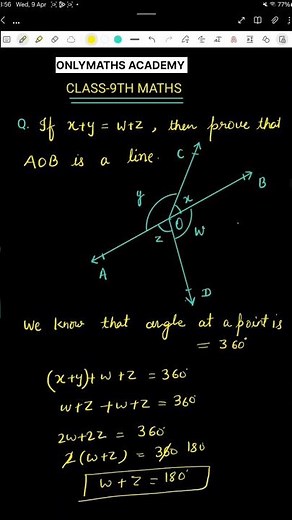 3:56 Wed, 9 Apr
77%
ONLYMATHS ACADEMY
CLASS-9TH MATHS
Q. If x+y = w+z, then prove that
AOB is a line.
C
B
y
x
O
z
w
A
D
We know that angle at a point is
= 360°
(x+y)+w+z = 360°
w+z+w+z = 360°
2w+2z = 360°
2(w+z) = 360 180
w+z = 180°